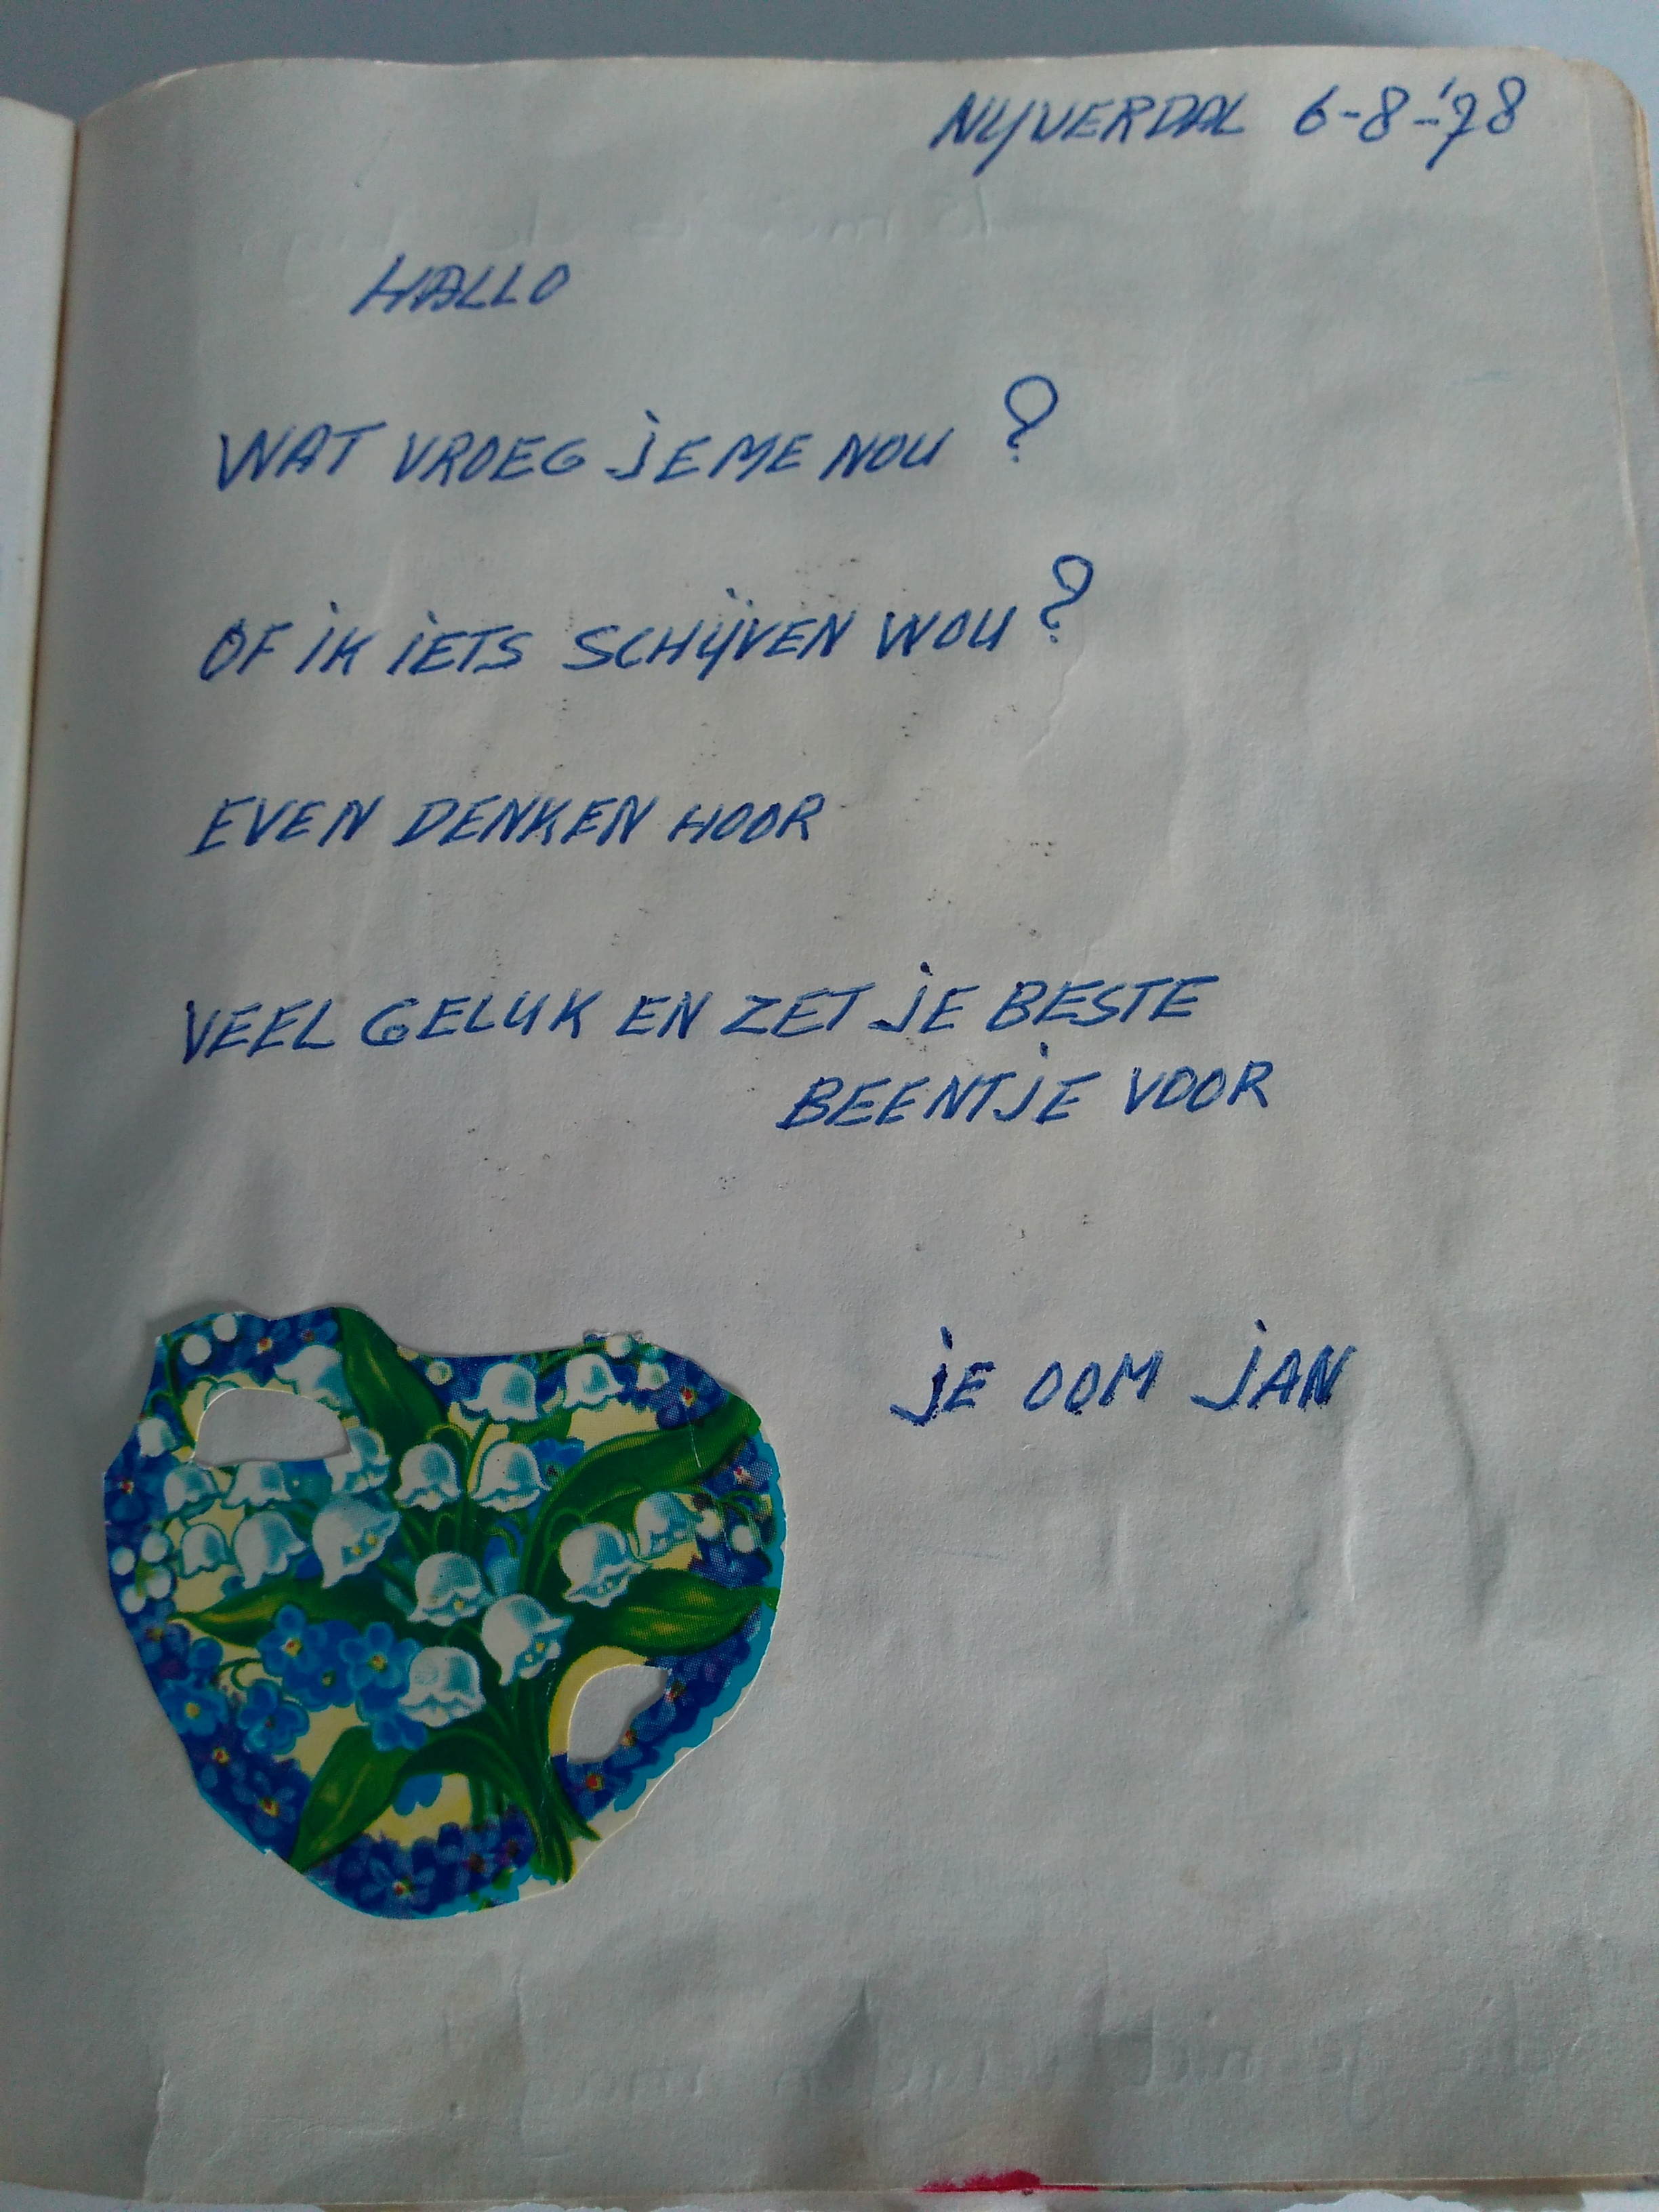 NIJVERDAL 6-8-'78
HALLO
WAT VROEG JE ME NOU ?
OF IK IETS SCHIJVEN WOU ?
EVEN DENKEN HOOR
VEEL GELUK EN ZET JE BESTE
BEENTJE VOOR
JE OOM JAN